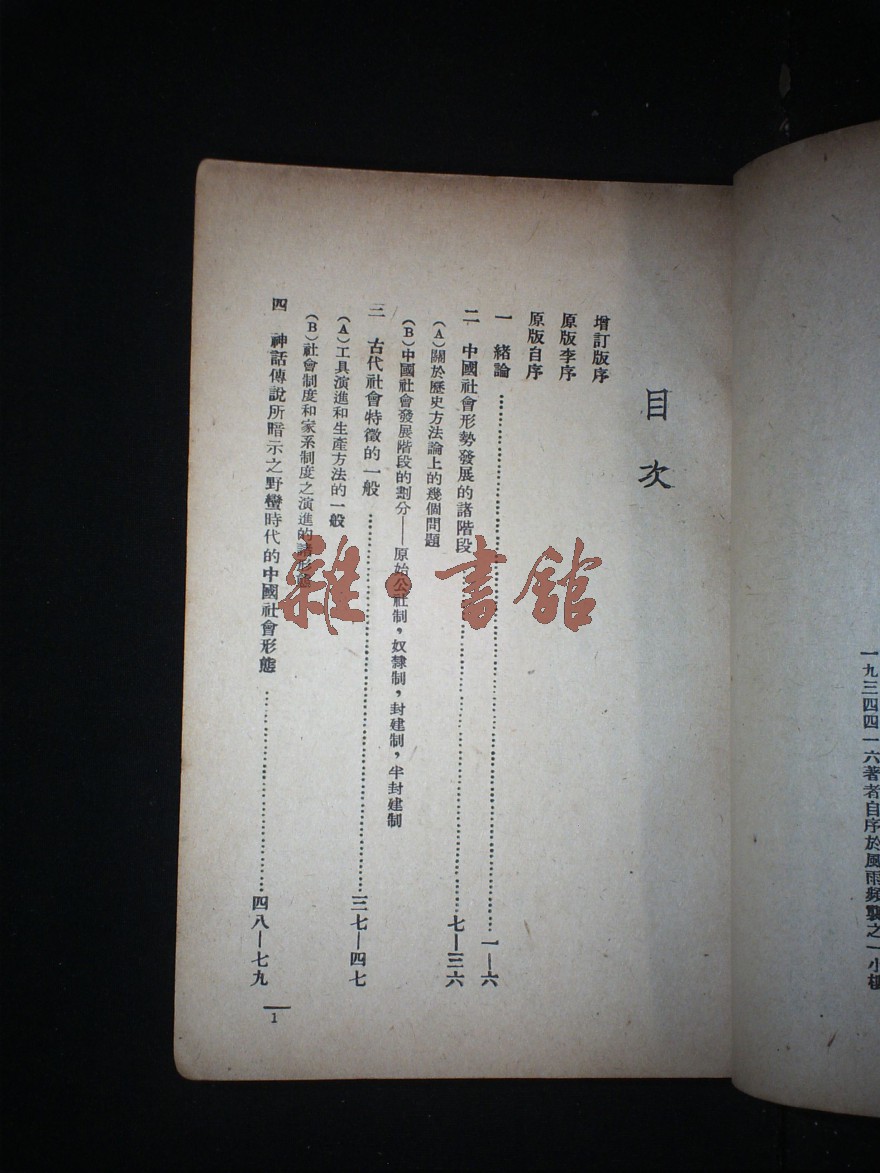 一九三四四一六著者自序於風雨頻襲之一小樓
目次
增訂版序
原版李序
原版自序
一　緒論…………一—六
二　中國社會形勢發展的諸階段…………七—三六
(A)關於歷史方法論上的幾個問題
(B)中國社會發展階段的劃分——原始公社制，奴隸制，封建制，半封建制
三　古代社會特徵的一般…………三七—四七
(A)工具演進和生產方法的一般
(B)社會制度和家系制度之演進的諸形態
四　神話傳說所暗示之野蠻時代的中國社會形態…………四八—七九
1
雜·書館